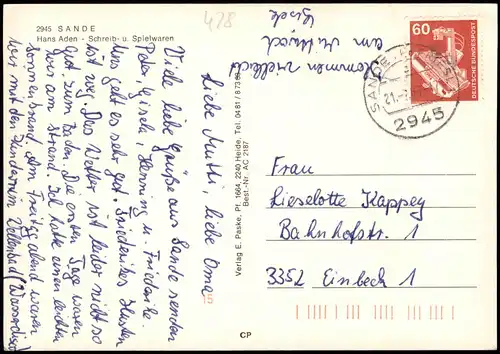 2945 SANDE
Hans Aden - Schreib- u. Spielwaren
428
Liebe Mutti, liebe Oma!
Viele liebe Grüße aus Sande senden
Peter, Gisela, Henning u. Friederike.
Uns geht es sehr gut. Friederikes Husten
ist weg. Das Wetter ist leider nicht so
gut. zum Baden. Die ersten Tage waren
wir am Strand. Ich hatte einen leichten
Sonnenbrand. Am Freitag abend waren
wir mit den Kindern im Wellenbad (Wasser
Kommen vielleicht
am Mittwoch
Verlag E. Paske, Pf. 1664, 2240 Heide, Tel. 04 81 / 8 73
Best.-Nr. AC 2187
CP
60
DEUTSCHE BUNDESPOST
SANDE
21.
2945
Frau
Lieselotte Kappey
Bahnhofstr. 1
3352 Einbeck 1